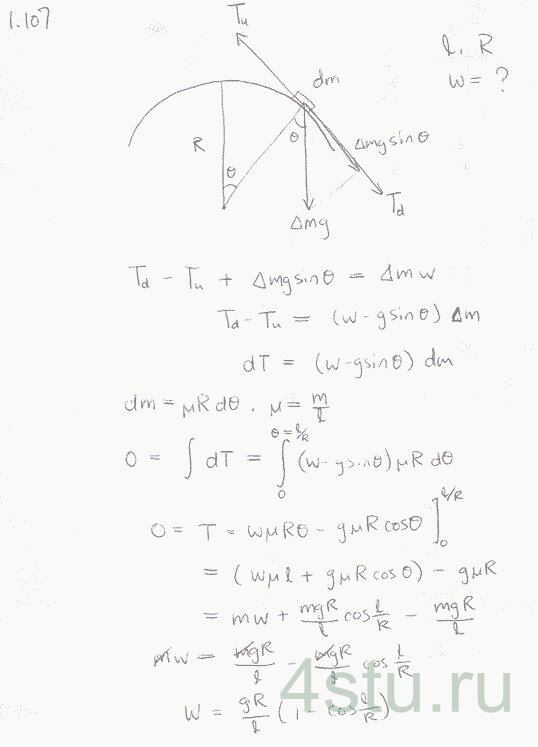 1.107
T_u
l, R
w = ?
dm
R
θ
θ
Δmg sinθ
T_d
Δmg
T_d - T_u + Δmg sinθ = Δm w
T_d - T_u = (w - g sinθ) Δm
dT = (w - g sinθ) dm
dm = μR dθ, μ = m/l
0 = ∫ dT = ∫_0^{θ = l/R} (w - g sinθ) μR dθ
0 = T = wμRθ - gμR cosθ ]_0^{l/R}
= (wμl + gμR cosθ) - gμR
= mw + mgR/l cos l/R - mgR/l
mw = mgR/l - mgR/l cos l/R
w = gR/l (1 - cos l/R)
4stu.ru